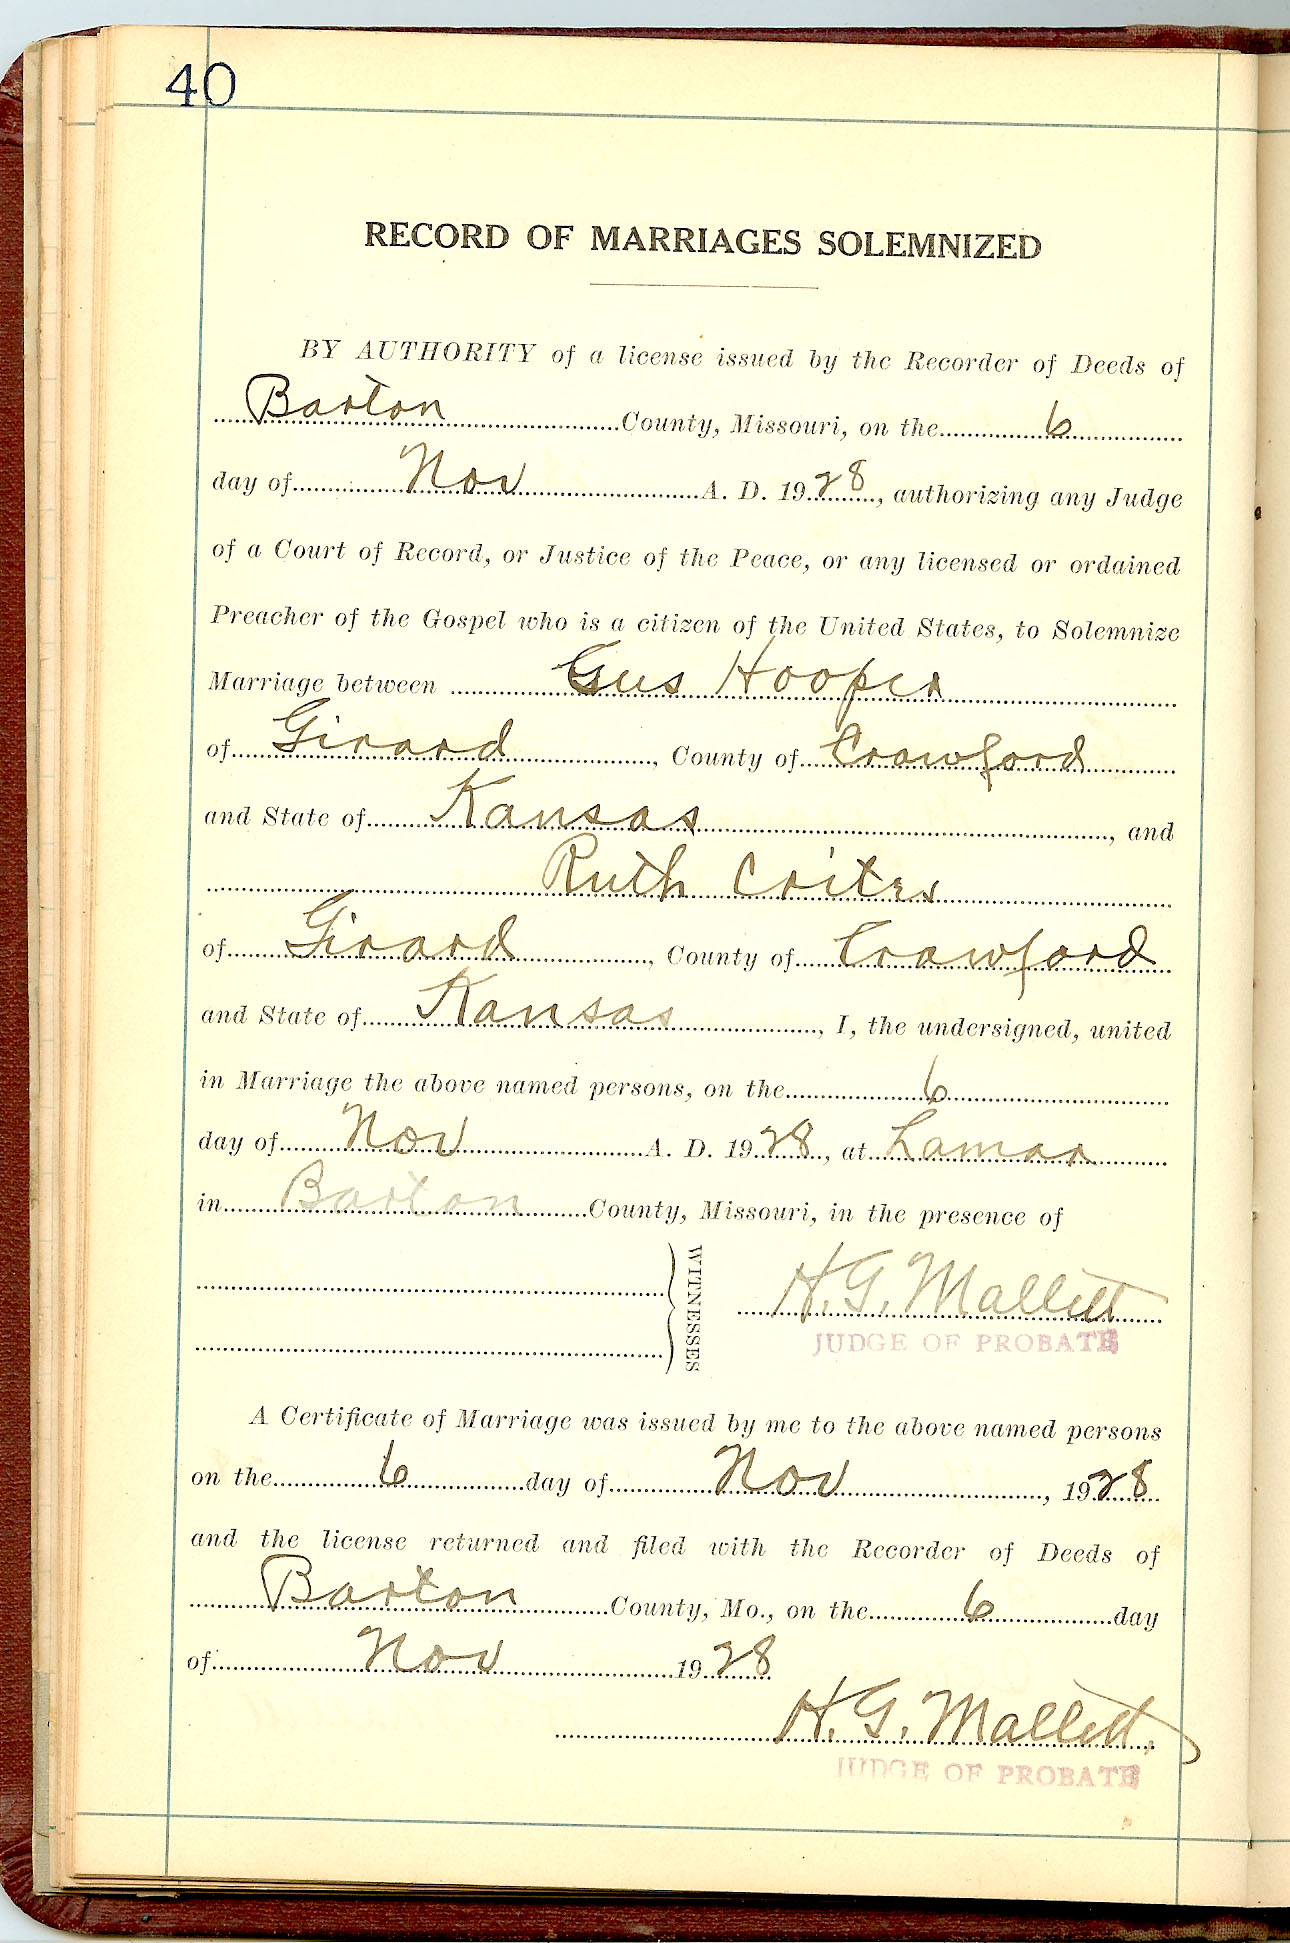 40
RECORD OF MARRIAGES SOLEMNIZED
BY AUTHORITY of a license issued by the Recorder of Deeds of
Barton County, Missouri, on the 6
day of Nov A. D. 1928, authorizing any Judge
of a Court of Record, or Justice of the Peace, or any licensed or ordained
Preacher of the Gospel who is a citizen of the United States, to Solemnize
Marriage between Gus Hooper
of Girard, County of Crawford
and State of Kansas, and
Ruth Coiter
of Girard, County of Crawford
and State of Kansas, I, the undersigned, united
in Marriage the above named persons, on the 6
day of Nov A. D. 1928, at Lamar
in Barton County, Missouri, in the presence of
WITNESSES
H. G. Mallett
JUDGE OF PROBATE
A Certificate of Marriage was issued by me to the above named persons
on the 6 day of Nov, 1928
and the license returned and filed with the Recorder of Deeds of
Barton County, Mo., on the 6 day
of Nov 1928
H. G. Mallett.
JUDGE OF PROBATE